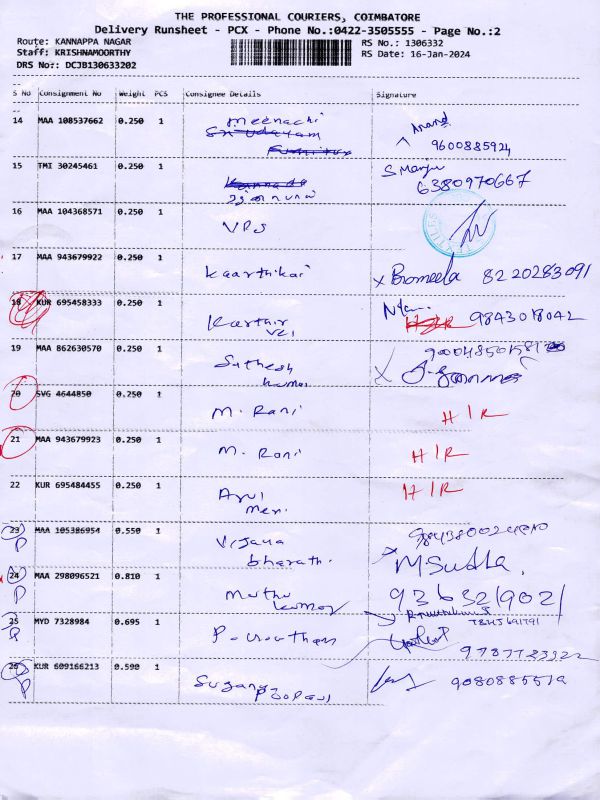 THE PROFESSIONAL COURIERS, COIMBATORE
Delivery Runsheet - PCX - Phone No.:0422-3505555 - Page No.:2
Route: KANNAPPA NAGAR
Staff: KRISHNAMOORTHY
DRS No.: DCJB130633202
RS No.: 1306332
RS Date: 16-Jan-2024
S No Consignment No Weight PCS Consignee Details Signature
14 MAA 108537662 0.250 1 Meenachi Anand
9600885924
15 TMI 30245461 0.250 1 S Manju
6380970667
16 MAA 104368571 0.250 1 VPS
17 MAA 943679922 0.250 1 Kaarthikai x Promeela 8220283091
18 KUR 695458333 0.250 1 Karthir H/R 9843018042
19 MAA 862630570 0.250 1 Suthesh
kumar
20 SVG 4644850 0.250 1 M. Rani H/R
21 MAA 943679923 0.250 1 M. Rani H/R
22 KUR 695484455 0.250 1 Arul
Meri H/R
23 MAA 105386954 0.550 1 Vijaya
P bharath. M Sudha.
24 MAA 298096521 0.810 1 Muthu
P kumar 9363219021
25 MYD 7328984 0.695 1
P 9787723322
26 KUR 609166213 0.590 1 9080885519
P